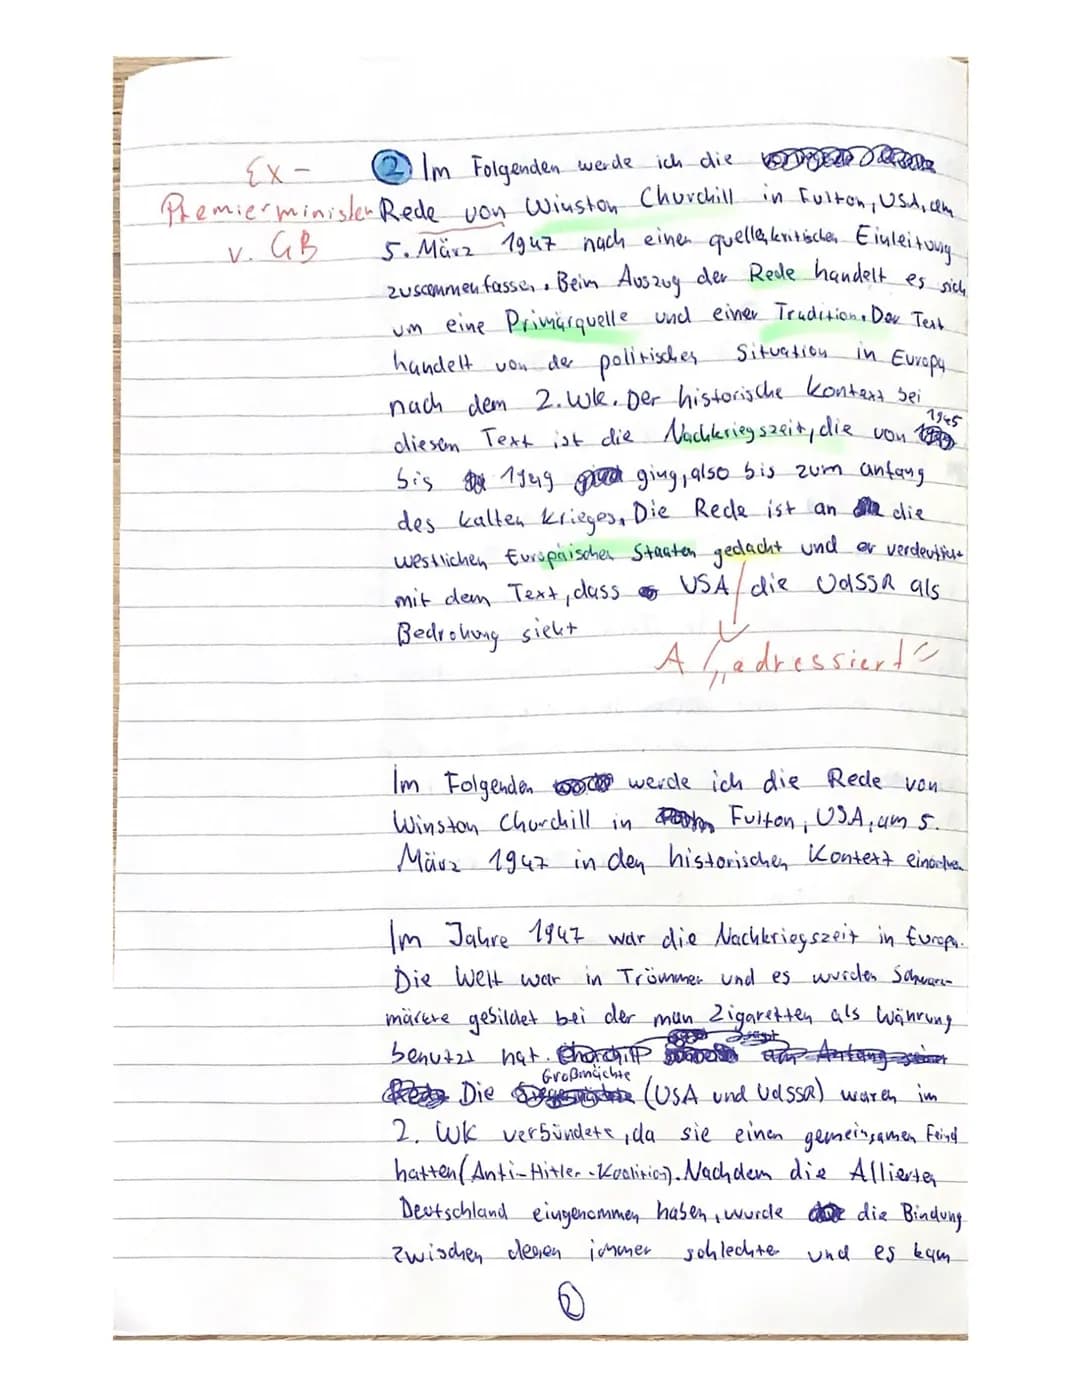 Ex-
Premierminister
v. GB
② Im Folgenden werde ich die
Rede von Winston Churchill in Fulton, USA, am
5. März 1947 nach einer quellenkritischen Einleitung
zusammenfassen. Beim Auszug der Rede handelt es sich
um eine Primärquelle und einer Tradition. Der Text
handelt von der politischen Situation in Europa
nach dem 2. Wk. Der historische Kontext bei
diesem Text ist die Nachkriegszeit, die von 1945
bis 1949 ging, also bis zum anfang
des kalten Krieges. Die Rede ist an die
westlichen Europäischen Staaten gedacht und er verdeutlicht
mit dem Text, dass USA die UdSSR als
Bedrohung sieht
A „adressiert“
Im Folgenden werde ich die Rede von
Winston Churchill in Fulton, USA, am 5.
März 1947 in den historischen Kontext einordnen
Im Jahre 1947 war die Nachkriegszeit in Europa.
Die Welt war in Trümmer und es wurden Schwarz-
märkte gebildet bei der man Zigaretten als Währung
benutzt hat.
Die Großmächte (USA und UdSSR) waren im
2. WK verbündete, da sie einen gemeinsamen Feind
hatten (Anti-Hitler-Koalition). Nachdem die Allierten
Deutschland eingenommen haben, wurde die Bindung
zwischen denen immer schlechter und es kam
②